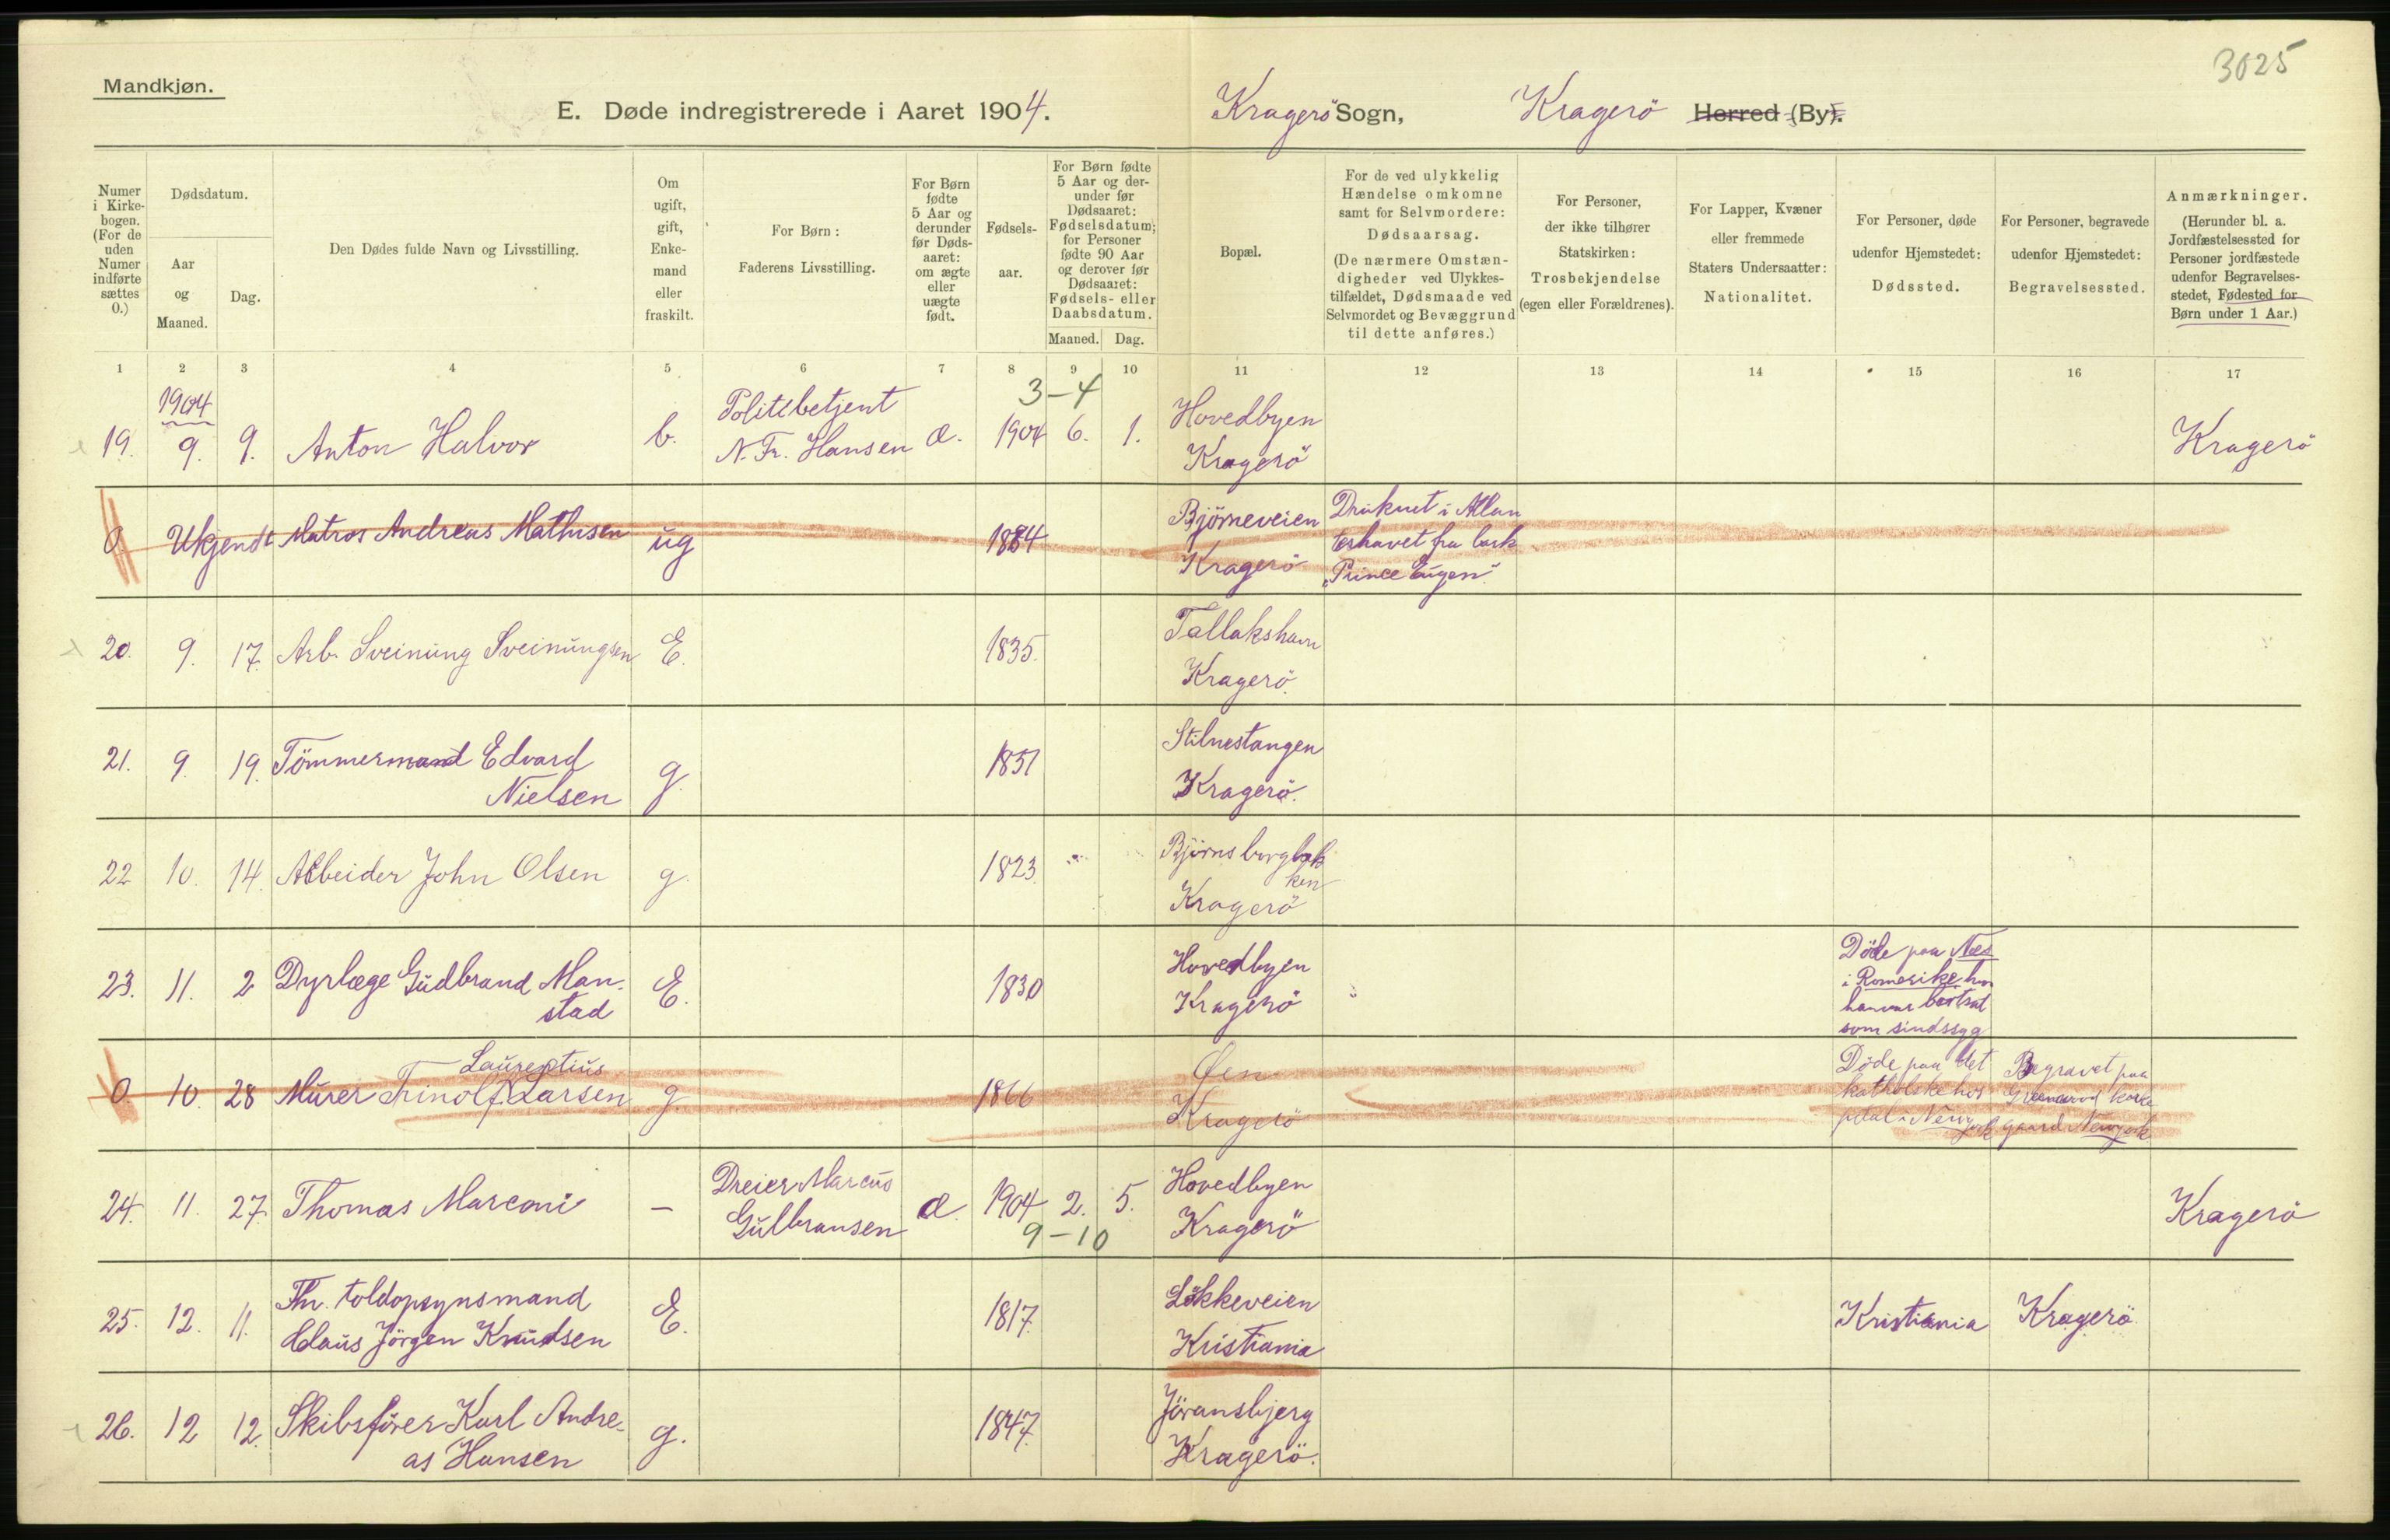 3025
Mandkjøn.
E. Døde indregistrerede i Aaret 1904. Kragerö Sogn, Kragerö Herred (By).
Numer i Kirkebogen. (For de uden Numer indførte sættes 0.)
Dødsdatum.
Aar og Maaned.
Dag.
Den Dødes fulde Navn og Livsstilling.
Om ugift, gift, Enkemand eller fraskilt.
For Børn: Faderens Livsstilling.
For Børn fødte 5 Aar og derunder før Dødsaaret: om ægte eller uægte født.
Fødselsaar.
For Børn fødte 5 Aar og derunder før Dødsaaret: Fødselsdatum; for Personer fødte 90 Aar og derover før Dødsaaret: Fødsels- eller Daabsdatum.
Maaned. Dag.
Bopæl.
For de ved ulykkelig Hændelse omkomne samt for Selvmordere: Dødsaarsag. (De nærmere Omstændigheder ved Ulykkestilfældet, Dødsmaade ved Selvmordet og Bevæggrund til dette anføres.)
For Personer, der ikke tilhører Statskirken: Trosbekjendelse (egen eller Forældrenes).
For Lapper, Kvæner eller fremmede Staters Undersaatter: Nationalitet.
For Personer, døde udenfor Hjemstedet: Dødssted.
For Personer, begravede udenfor Hjemstedet: Begravelsessted.
Anmærkninger. (Herunder bl. a. Jordfæstelsessted for Personer jordfæstede udenfor Begravelsesstedet, Fødested for Børn under 1 Aar.)
1 2 3 4 5 6 7 8 9 10 11 12 13 14 15 16 17
1904
3-4
19. 9. 9. Anton Halvor b. Politibetjent N. Fr. Hansen æ. 1904 6. 1. Hovedbyen Kragerö Kragerö
0. Ukjendt Matros Andreas Mathisen ug 1884 Björneveien Kragerö Druknet i Atlanterhavet fra bark "Prince Eugen".
20. 9. 17. Arb. Sveinung Sveinungsen E. 1835. Tallakshavn Kragerö.
21. 9. 19. Tömmermand Edvard Nielsen g. 1851 Stilnestangen Kragerö.
22 10. 14. Arbeider John Olsen g. 1823. Björnsborgbakken Kragerö
23. 11. 2 Dyrlæge Gudbrand Manstad E. 1830 Hovedbyen Kragerö Döde paa Næs i Romerike hvor han var bortsat som sindssyg
0. 10. 28 Murer Trinolf Laurentius Larsen g. 1866 Øen Kragerö Döde paa det katholske hospital i Newyork Begravet paa Greenwood kirkegaard Newyork
24. 11. 27. Thomas Marconi - Dreier Marcus Gulbransen æ. 1904 2. 5. Hovedbyen Kragerö Kragerö
9-10
25. 12. 11. Fhv. toldopsynsmand Claus Jörgen Knudsen E. 1817. Lökkeveien Kristiania Kristiania Kragerö
26. 12 12. Skibsförer Karl Andreas Hansen g. 1847. Jöransbjerg Kragerö.